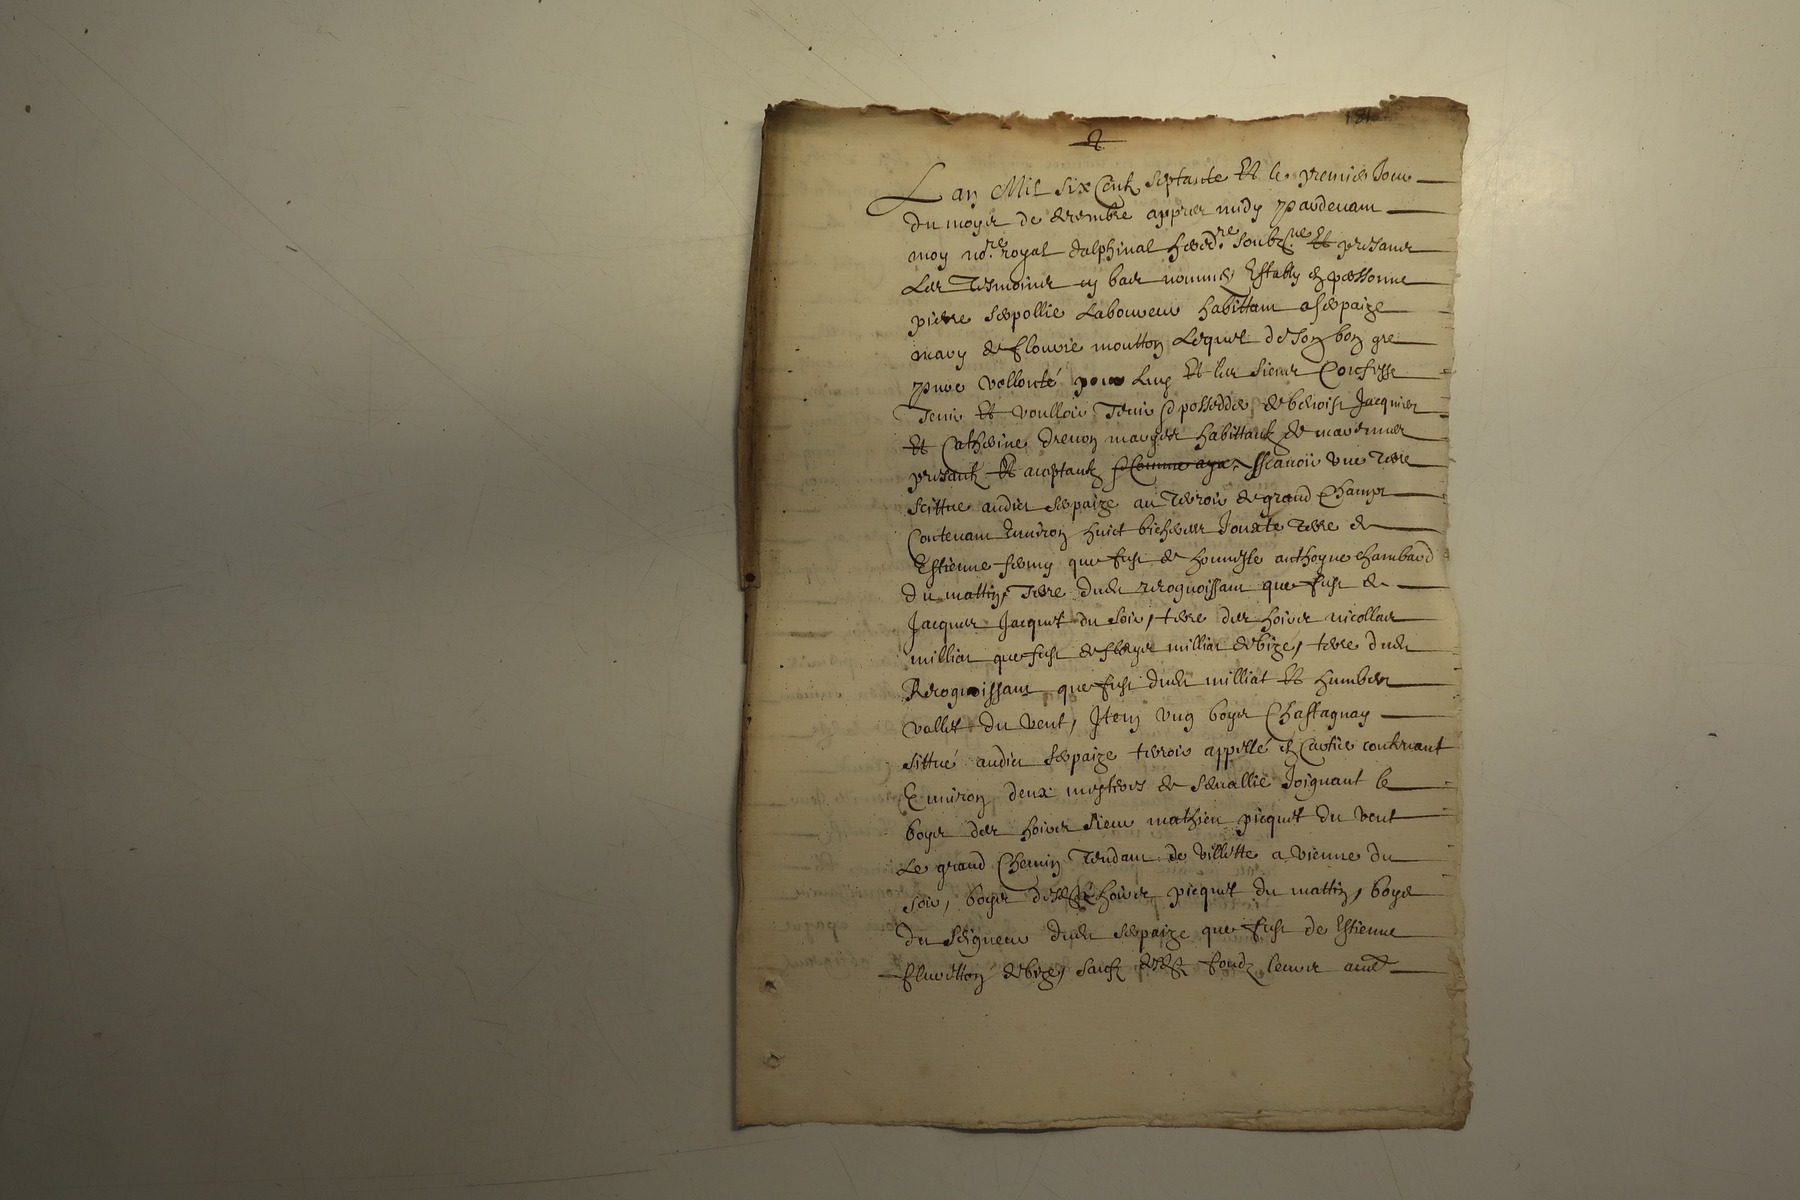 2
Lan Mil Six Centz septante Et le premier Jour
du moys de decembre appres midy pardevant
moy no.re royal dalphinal hered.re soubz.né Et presance
Les Tesmoins cy bas nommés Estably en personne
pierre Serpollie Laboureur habittant a Serpaize
mary de flourie moutton Lequel de son bon gre
pure vollonté pour Luy Et les siens Confesse
Tenir Et voulloir Tenir posseder de benoist Jacquier
Et Catherine drevon maryes habittantz de marennes
presantz Et aceptantz Comme aye. Scavoir une Terre
scittue audict Serpaize au Terroir de grand Champt
Contenant Environ huict bicherees Jouxte Terre de
Estienne que fust de honneste anthoyne chambard
du mattin, Terre dudit recognoissant que fust de
Jacques Jacquet du soir, terre des hoirs nicollas
milliat que fust de milliat de bize, terre dudit
Recognoissant que fust dudit milliat Et humbert
vallet du vent, Item ung boys Chastagnay
sittué audict Serpaize terroir appellé en contenant
Environ deux mestiers de semallie Joignant le
boys des hoirs sieur mathieu picquet du vent
Le grand Chemin Tendant de villette a vienne du
soir, boys desditz hoirs picquet du mattin, boys
du seigneur dudit Serpaize que fust de Estienne
de bize, Sauf desditz fondz leurs